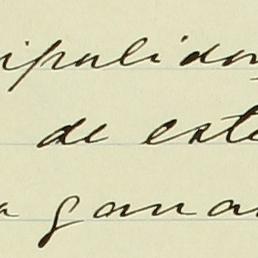 ipulidor
de este
a ganar